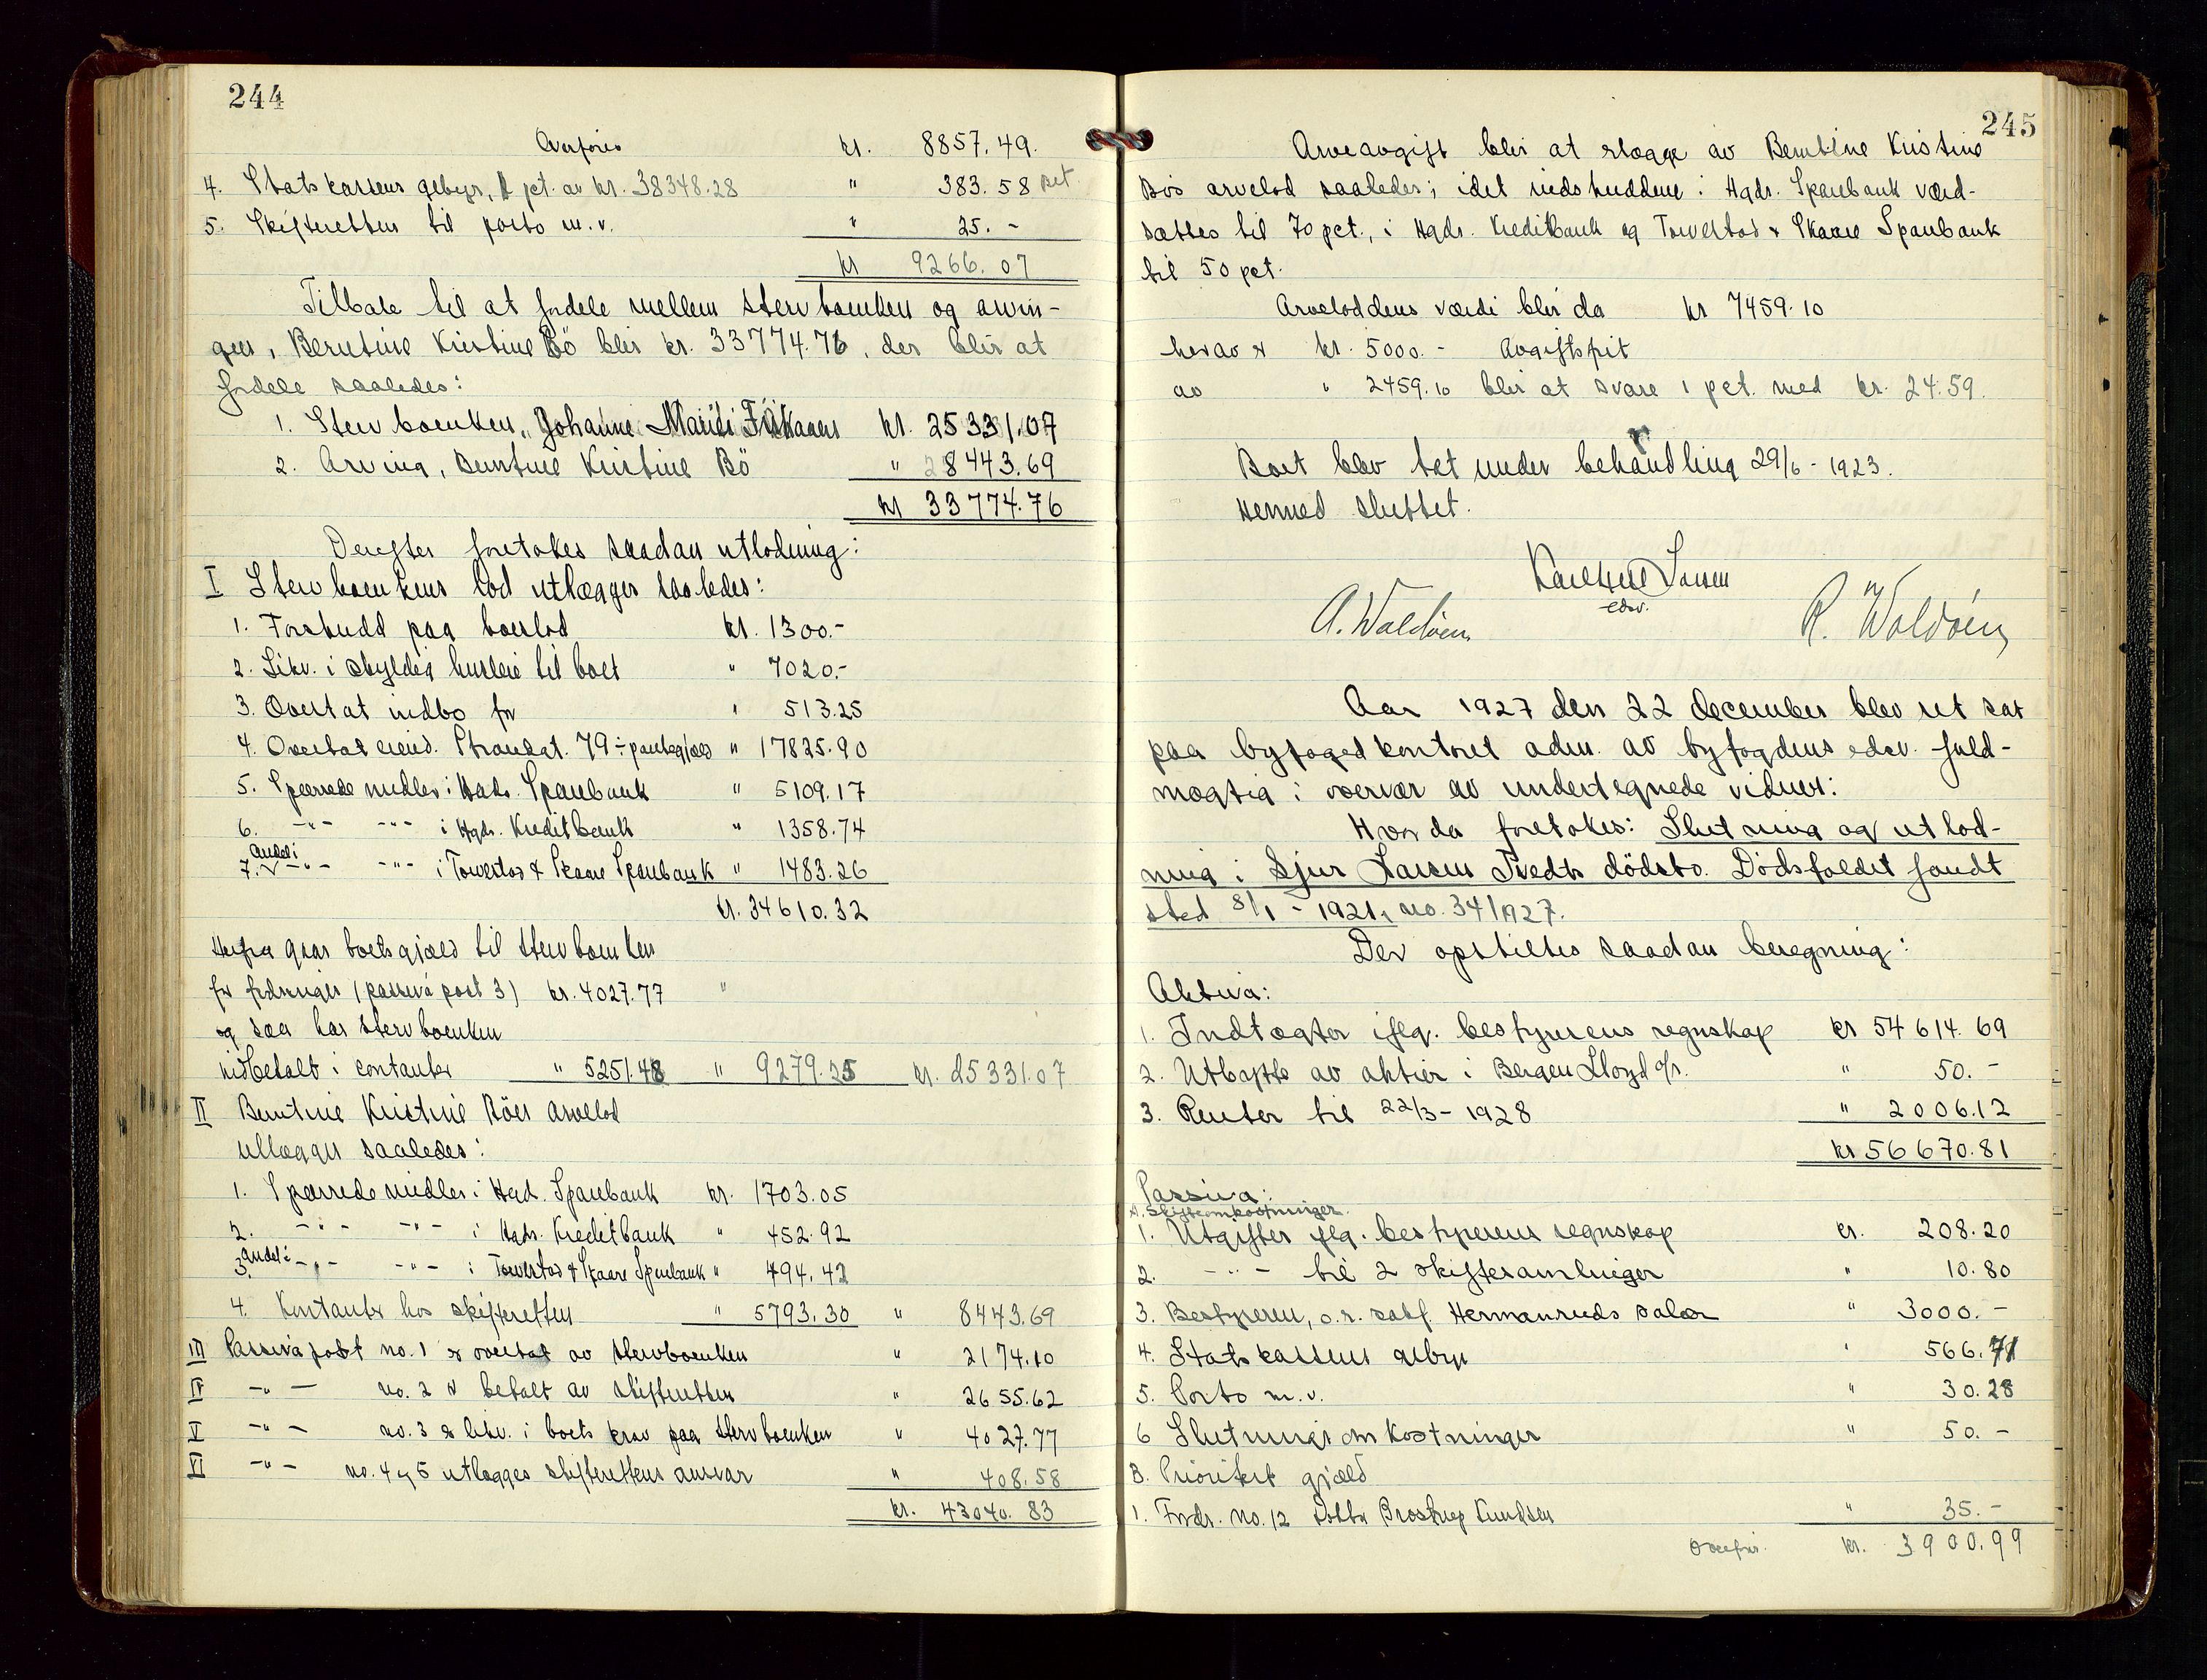 244
Overføres kr. 8857.49.
4. Statskassens gebyr, 1 pct. av kr. 38348.28 " 383.58
5. Skifteretten til porto m.v. " 25.-
kr 9266.07
Tilbake til at fordele mellem stervboenken og arvin-
gen, Berntine Kristine Bö blir kr. 33774.76, der blir at
fordele saaledes:
1. Stervboenken, Johanne kr. 25331.07
2. Arving, Berntine Kristine Bö " 8443.69
kr 33774.76
Derefter foretokes saadan utlodning:
I Stervboenkens lod utlægges saaledes:
1. Forskudd paa boeslod kr. 1300.-
2. Likv. i skyldig husleie til boet " 7020.-
3. Overtat indbo for " 513.25
4. Overtat eiend. Strandgt. 79 ÷ pantegjæld " 17825.90
5. Sperrede midler i Hgds. Sparebank " 5109.17
6. -"- -"- i Hgds. Kreditbank " 1358.74
7. Andel i -"- -"- i Torvestad & Skaare Sparebank " 1483.26
kr. 34610.32
Herfra gaar boets gjæld til stervboenken
for fordringer (passiva post 3) kr. 4027.77 "
og saa har stervboenken
indbetalt i contanter " 5251.48 " 9279.25 kr. 25331.07
II Berntine Kristine Böes arvelod
utlægges saaledes:
1. Sperrede midler i Hgd. Sparebank kr. 1703.05
2. -"- -"- i Hgds. Kreditbank " 452.92
3. Andel i -"- -"- i Torvestad & Skaare Sparebank " 494.42
4. Kontanter hos skifteretten " 5793.30 " 8443.69
III Passiva post no. 1 er overtat av stervboenken " 2174.10
IV -"- no. 2 er betalt av skifteretten " 2655.62
V -"- no. 3 er likv. i boets krav paa stervboenken " 4027.77
VI -"- no. 4 og 5 utlægges skifterettens ansvar " 408.58
kr. 43040.83
245
Arveavgift blir at erlægge av Berntine Kristine
Bös arvelod saaledes; idet indskuddene i Hgds. Sparebank værd-
sættes til 70 pct., i Hgds. Kreditbank og Torvestad & Skaare Sparebank
til 50 pct.
Arveloddens værdi blir da kr 7459.10
herav er kr. 5000.- avgiftsfrit
av " 2459.10 blir at svare 1 pct. med kr. 24.59.
Boet blev tat under behandling 29/6 - 1923.
Hermed sluttet.
Larsen
edsv.
A. Waldöen R. Waldöen
Aar 1927 den 22 december blev ret sat
paa byfogedkontoret adm. av byfogdens edsv. fuld-
mægtig i overvær av undertegnede vidner:
Hvor da foretokes: Slutning og utlod-
ning i Sjur Larsen Tvedts dödsbo. Dödsfaldet fandt
sted 8/1 - 1921, no. 34/1927.
Der opstilles saadan beregning:
Aktiva:
1. Indtægter iflg. bestyrerens regnskap kr 54614.69
2. Utbytte av aktier i Bergen Lloyd a/s. " 50.-
3. Renter til 22/3 - 1928 " 2006.12
kr 56670.81
Passiva:
A. Skifteomkostninger.
1. Utgifter iflg. bestyrerens regnskap kr. 208.20
2. -"- til 2 skiftesamlinger " 10.80
3. Bestyreren, o.r. sakf. Hermansruds salær " 3000.-
4. Statskassens gebyr " 566.71
5. Porto m.v. " 30.28
6 Slutningsomkostninger " 50.-
B. Prioritert gjæld
1. Fordr. no. 12 Brostrup Knudsen " 35.-
Overføres kr. 3900.99